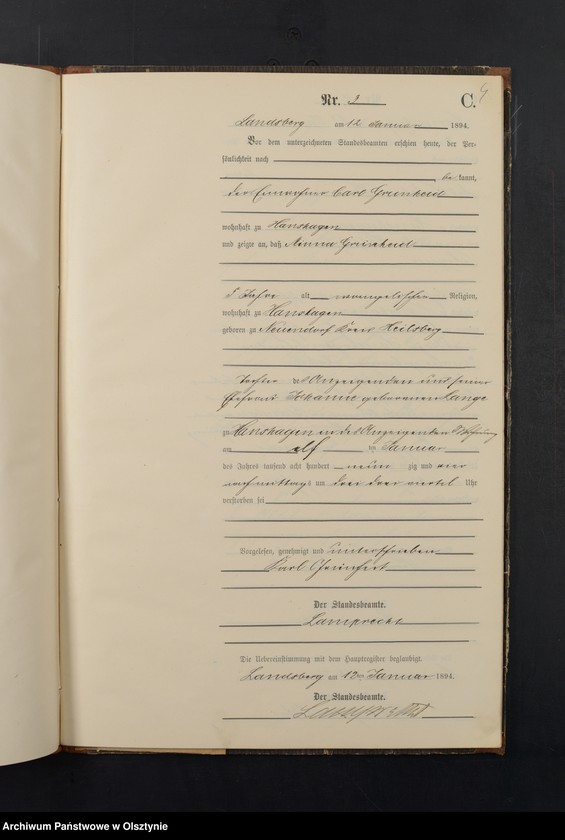 Nr. 3 C. 4
Landsberg am 12 Januar 1894.
Vor dem unterzeichneten Standesbeamten erschien heute, der Per-
sönlichkeit nach
be kannt,
der Einwohner Carl Grünheid
wohnhaft zu Hanshagen
und zeigte an, daß Minna Grünheid
5 Jahre alt evangelischer Religion,
wohnhaft zu Hanshagen
geboren zu Neuendorf Kreis Heilsberg
Tochter des Anzeigenden und seiner
Ehefrau Johanne geborenen Lange
zu Hanshagen in des Anzeigenden Wohnung
am elf ten Januar
des Jahres tausend acht hundert neun zig und vier
nachmittags um drei drei viertel Uhr
verstorben sei
Vorgelesen, genehmigt und unterschrieben
Karl Grünheit
Der Standesbeamte.
Lamprecht
Die Uebereinstimmung mit dem Hauptregister beglaubigt.
Landsberg am 12ten Januar 1894.
Der Standesbeamte.
Archiwum Państwowe w Olsztynie